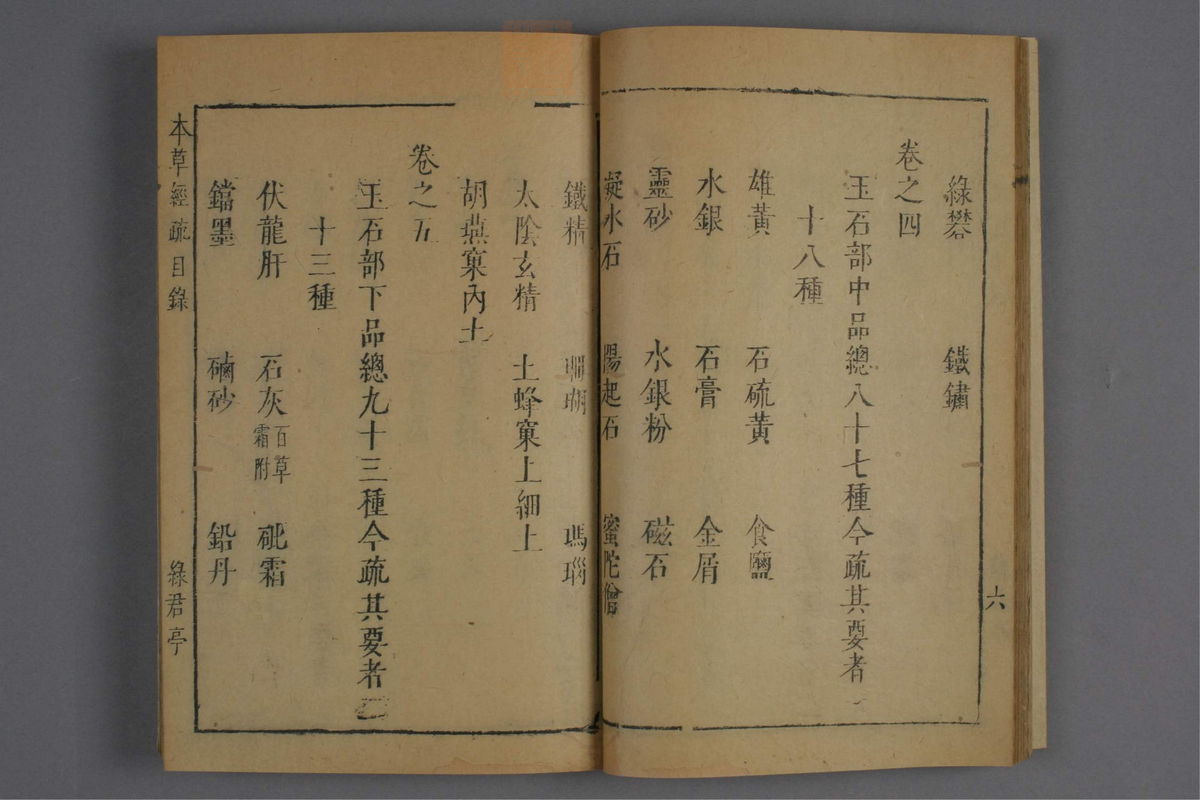 六
綠礬 鐵鏽
卷之四
玉石部中品總八十七種今疏其要者
十八種
雄黃 石硫黃 食鹽
水銀 石膏 金屑
靈砂 水銀粉 磁石
凝水石 陽起石 蜜陀僧
鐵精 珊瑚 瑪瑙
太陰玄精 土蜂窠上細土
胡燕窠內土
卷之五
玉石部下品總九十三種今疏其要者
十三種
伏龍肝 石灰百草霜附 砒霜
鐺墨 硇砂 鉛丹
本草經疏目錄 綠君亭